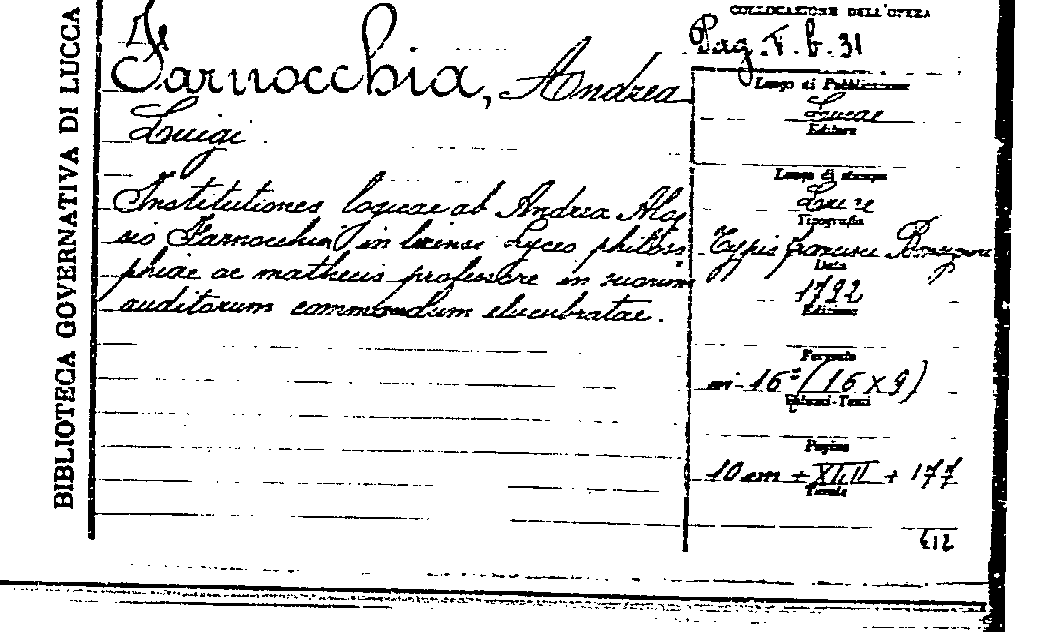 BIBLIOTECA GOVERNATIVA DI LUCCA
COLLOCAZIONE DELL'OPERA
Pag. T. b. 31
Farnocchia, Andrea
Luigi.
Institutiones logicae ab Andrea Aloy
sio Farnocchia in lucensi Lyceo philoso
phiae ac matheseis professore in suorum
auditorum commodum elucubratae.
Luogo di Pubblicazione
Lucae
Editore
Luogo di stampa
Lucae
Tipografia
Typis
Data
Edizione
Formato
in-16° (16 x 9)
Pagine
+ 177
Tavole
612